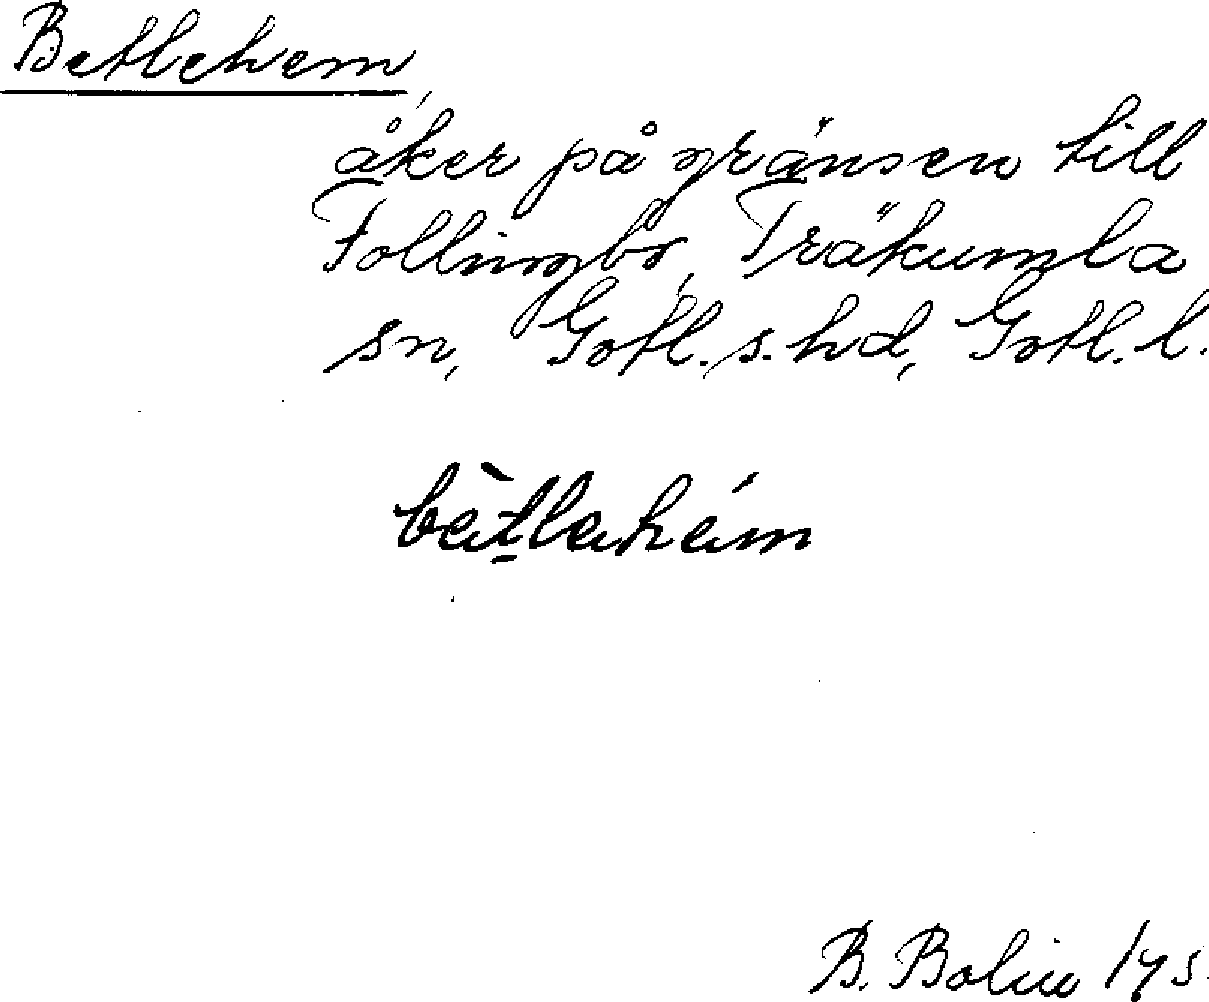 Betlehem,
åker på gränsen till
Follingbo, Träkumla
sn, Gotl. s. hd, Gotl. l.
bètlehém
B. Bolin